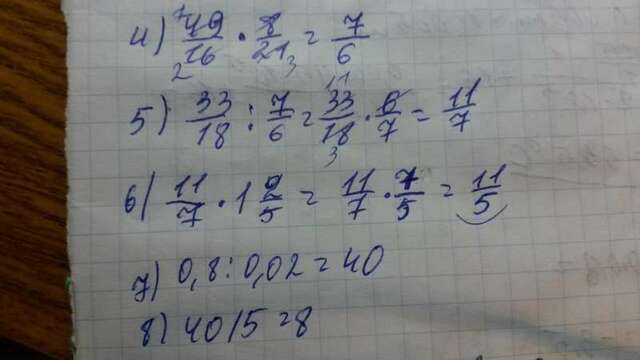 4) 49/16 · 8/21 = 7/6
5) 33/18 : 7/6 = 33/18 · 6/7 = 11/7
6) 11/7 · 1 2/5 = 11/7 · 7/5 = 11/5
7) 0,8 : 0,02 = 40
8) 40/5 = 8